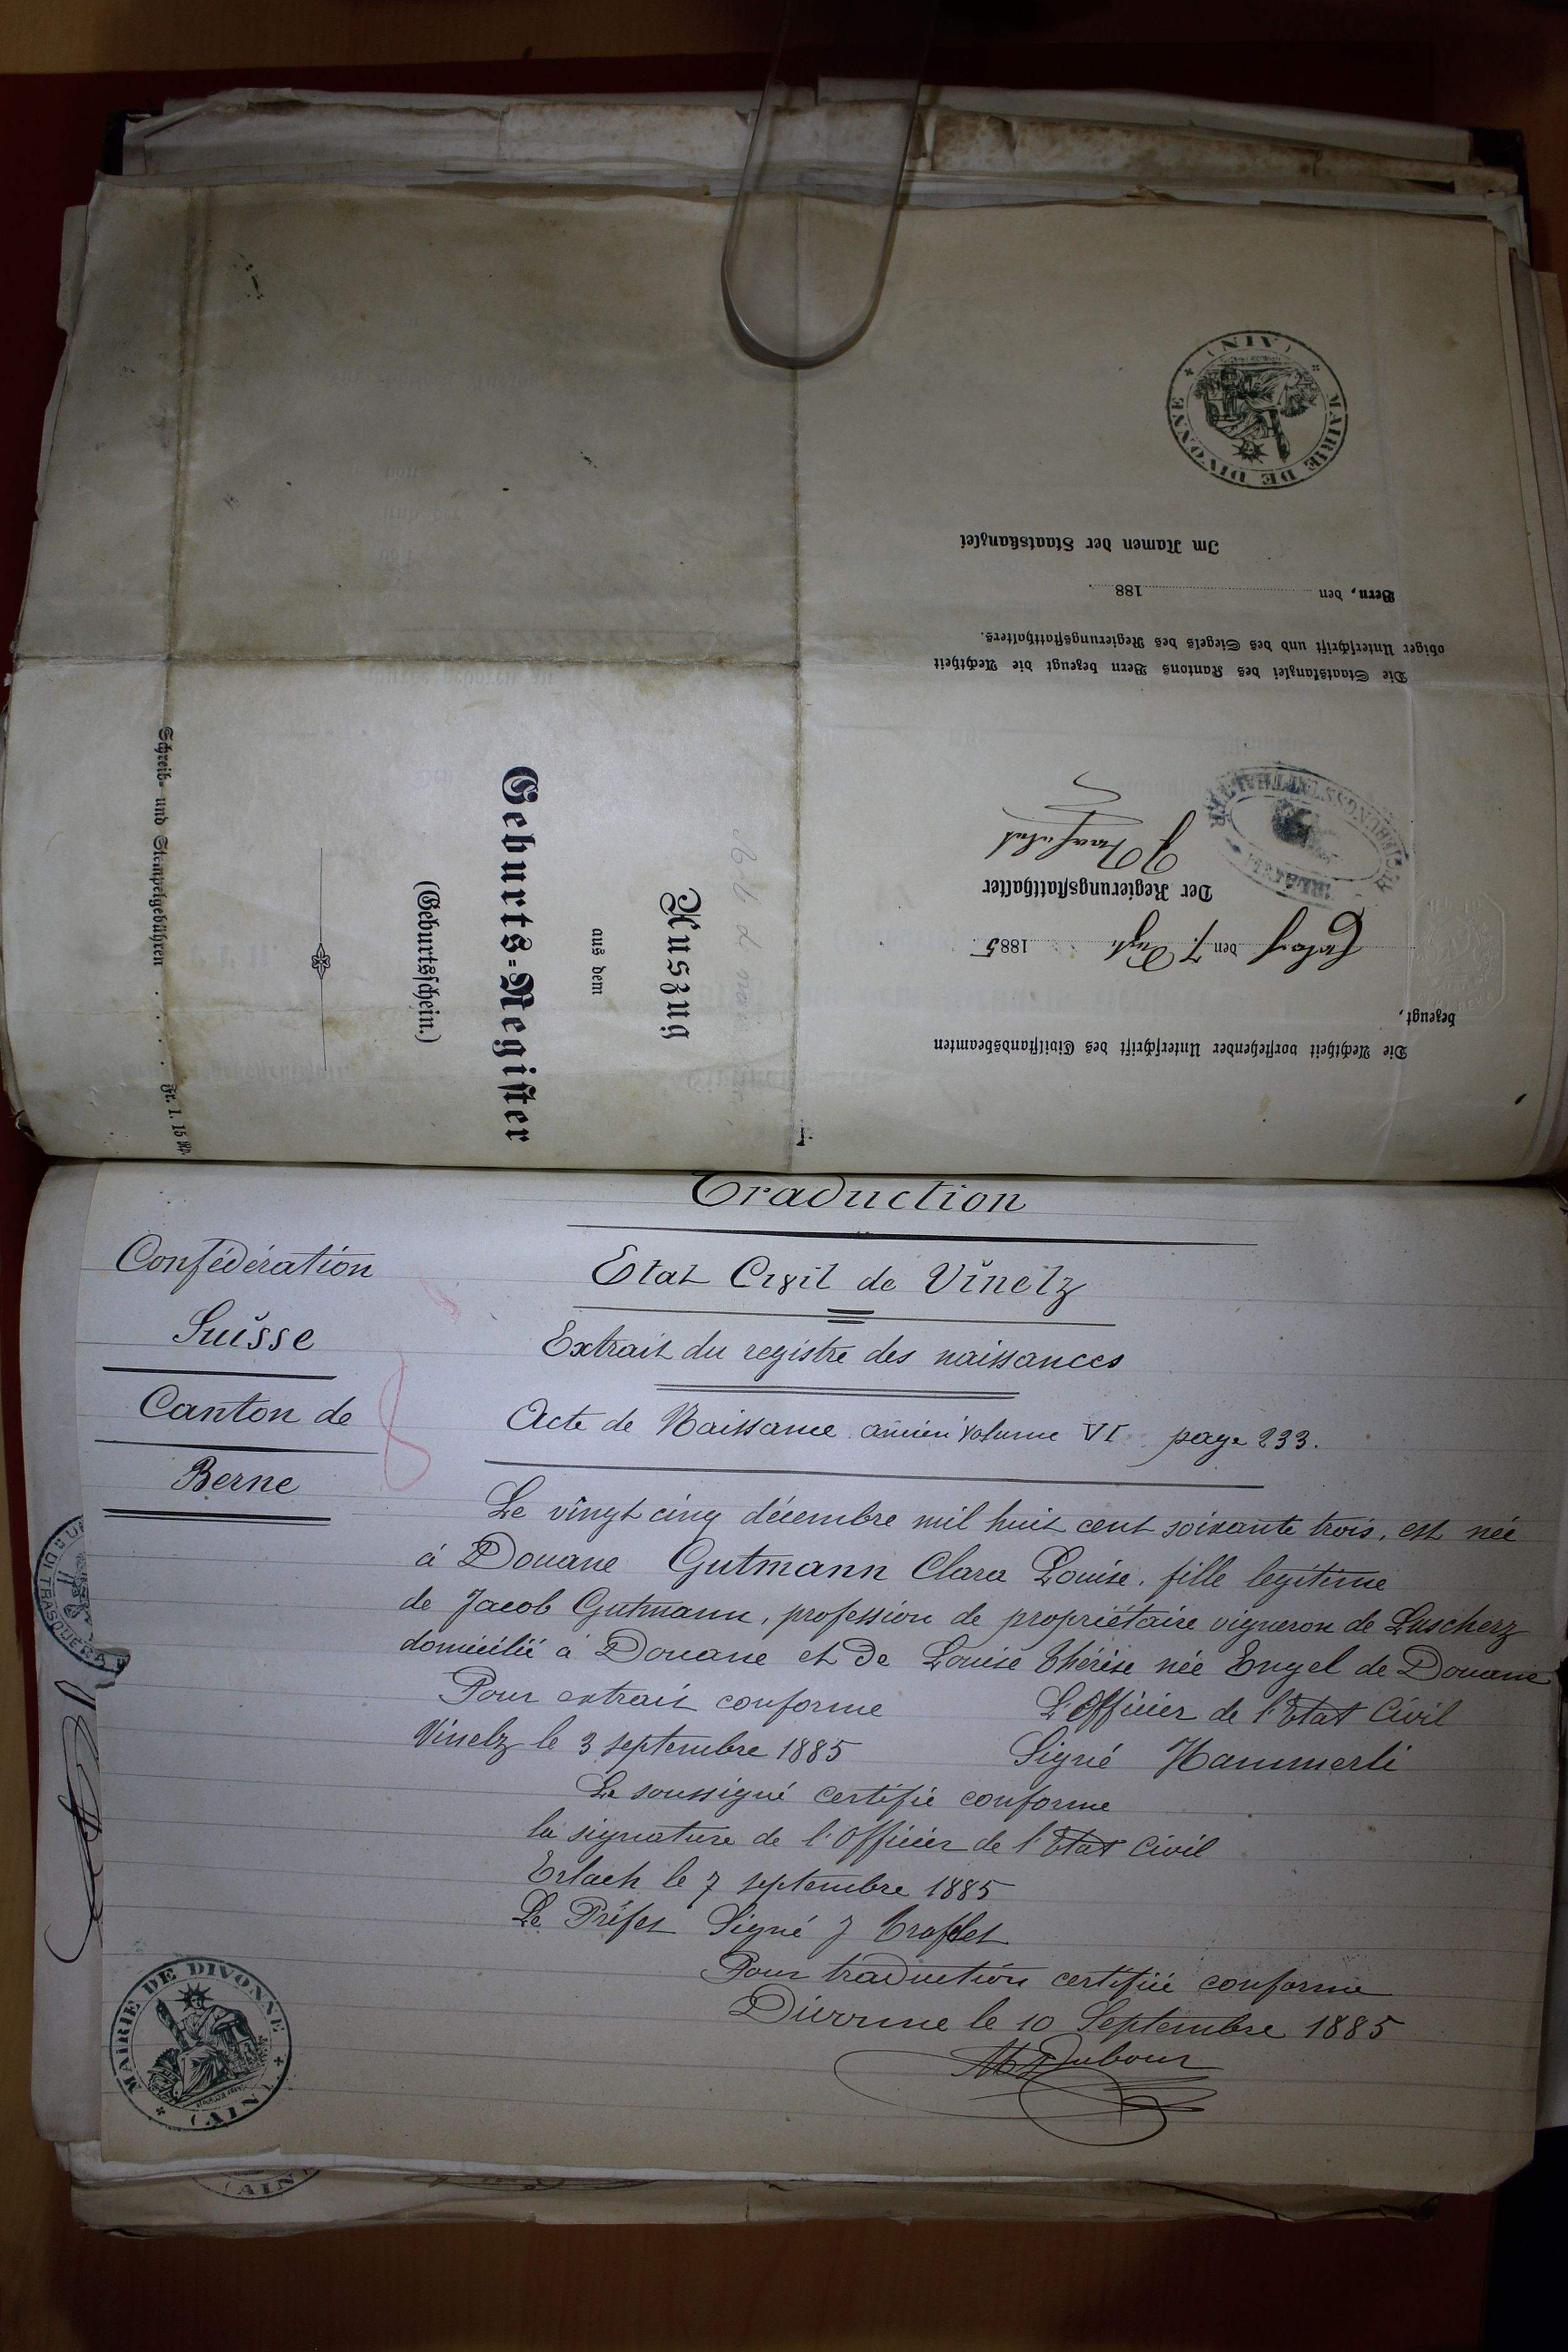 Die Aechtheit vorstehender Unterschrift des Civilstandsbeamten
bezeugt,
den 7. 1885.
Der Regierungsstatthalter
Die Staatskanzlei des Kantons Bern bezeugt die Aechtheit
obiger Unterschrift und des Siegels des Regierungsstatthalters.
Bern, den 188 .
Im Namen der Staatskanzlei
MAIRIE DE DIVONNE
(AIN)
Auszug
aus dem
Geburts-Register
(Geburtsschein.)
Schreib- und Stempelgebühren . . . . Fr. 1. 15 Rp.
Traduction
Confédération
Suisse
Canton de
Berne
Etat Civil de Vinelz
Extrait du registre des naissances
Acte de Naissance ancien volume VI page 233.
Le vingt cinq décembre mil huit cent soixante trois, est née
à Douane Gutmann Clara Louise, fille legitime
de Jacob Gutmann, profession de propriétaire vigneron de Luscherz
domicilié à Douane et de Louise Thérèse née Engel de Douane
Pour extrait conforme L'Officier de l'Etat Civil
Vinelz le 3 septembre 1885 Signé Hammerli
Le soussigné certifie conforme
la signature de l'Officier de l'Etat Civil
Erlach le 7 septembre 1885
Le Préfet Signé J
Pour traduction certifiée conforme
Divonne le 10 Septembre 1885
MAIRIE DE DIVONNE
(AIN)
(AIN)